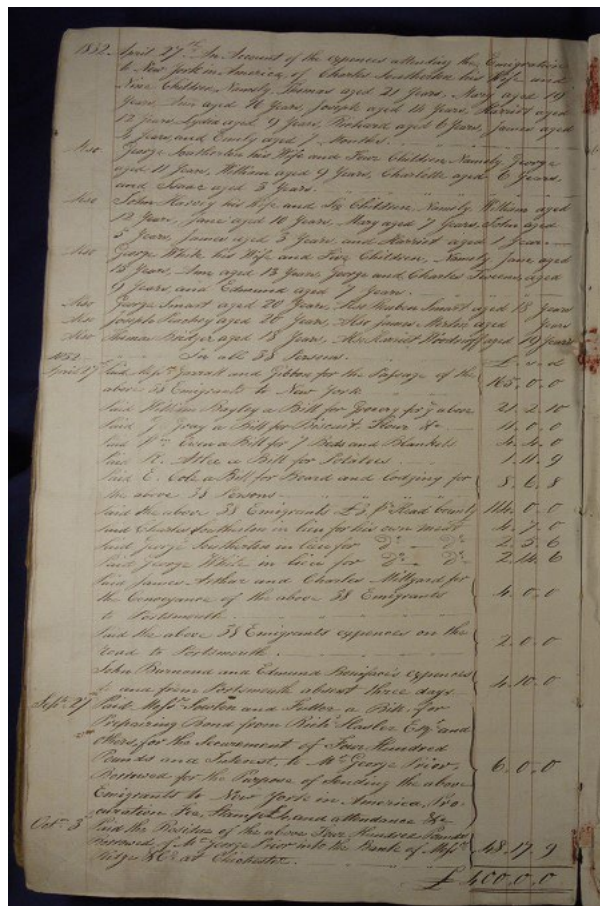 1832 April 27th An Account of the expences attending the Emigration
to New York in America, of Charles Southerton his Wife and
Nine Children, Namely, Thomas aged 21 Years, Mary aged 19
Years, Ann aged 16 Years, Joseph aged 14 Years, Harriet aged
12 Years, Lydia aged 9 Years, Richard aged 6 Years, James aged
Years, and Emily aged 7 Months.
Also George Southerton his Wife and Four Children Namely George
aged 11 Years, William aged 9 Years, Charlotte aged 6 Years,
and Isaac aged 3 Years.
Also John his Wife and Six Children, Namely, William aged
12 Years, Jane aged 10 Years, Mary aged 7 Years, John aged
5 Years, James aged 3 Years, and Harriet aged 1 Year.
Also George White his Wife and Five Children, Namely, Jane aged
15 Years, Ann aged 13 Years, George and Charles Twins, aged
9 Years, and Edmund aged 7 Years.
Also George Smart aged 20 Years, Also Reuben Smart aged 18 Years
Also Joseph aged 20 Years, Also James aged Years
Also Thomas Bridger aged 18 Years, Also Harriet Woodruff aged 19 Years
In all 38 Persons.
1832 £ s d
April 27 Paid Messrs Garratt and Gibbon for the Passage of the
above 38 Emigrants to New York 165.0.0
Paid William Bayley a Bill for Grocery for ye above 21.2.10
Paid J. Gray a Bill for Biscuit, Flour &c 11.0.0
Paid Wm a Bill for 7 Beds and Blankets 4.4.0
Paid R. a Bill for Potatoes 1.11.9
Paid E. Cole a Bill for Board and Lodging for
the above 38 Persons 8.6.8
Paid the above 38 Emigrants £3 pr Head Bounty 114.0.0
Paid Charles Southerton in lieu for his own meat 4.7.0
Paid George Southerton in lieu for Do Do 2.5.6
Paid George White in lieu for Do Do 2.14.6
Paid James Arthur and Charles Millyard for
the Conveyance of the above 38 Emigrants
to Portsmouth 4.0.0
Paid the above 38 Emigrants expences on the
road to Portsmouth 2.0.0
John Burnand and Edmund Boniface's expences
to and from Portsmouth absent three days 4.10.0
Septr 27th Paid Messrs and Fuller a Bill, for
Preparing Bond from Richd Hasler Esqr and
others, for the Securement of Four Hundred
Pounds and Interest, to Mr George Prior,
Borrowed for the Purpose of Sending the above
Emigrants to New York in America,
Fee, Stamps and attendance &c 6.0.0
Octr 3 Paid the Residue of the above Four Hundred Pounds
Borrowed of Mr George Prior into the Bank of Messrs
Ridge & Co at Chichester. 48.17.9
£ 400.0.0